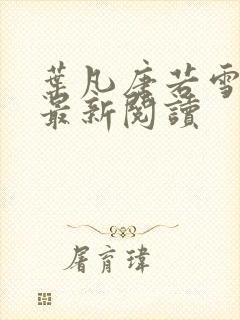 葉凡唐若雪
最新閱讀
屠育瑋